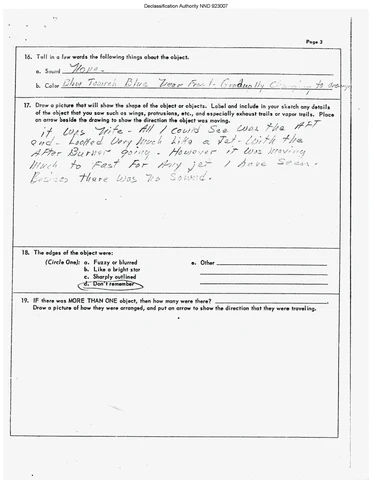 Declassification Authority NND 923007
Page 3
16. Tell in a few words the following things about the object.
a. Sound None.
b. Color Blue Towards Blue Near Front - Gradually Changing to orange
17. Draw a picture that will show the shape of the object or objects. Label and include in your sketch any details
of the object that you saw such as wings, protrusions, etc., and especially exhaust trails or vapor trails. Place
an arrow beside the drawing to show the direction the object was moving.
it was Nite - All I could See was the AFT
end - Looked Very Much Like a Jet - With the
After Burner going - However it was Moving
Much to Fast For Any jet I have Seen.
Besides there was no Sound.
18. The edges of the object were:
(Circle One): a. Fuzzy or blurred
e. Other
b. Like a bright star
c. Sharply outlined
d. Don't remember
19. IF there was MORE THAN ONE object, then how many were there?
Draw a picture of how they were arranged, and put an arrow to show the direction that they were traveling.